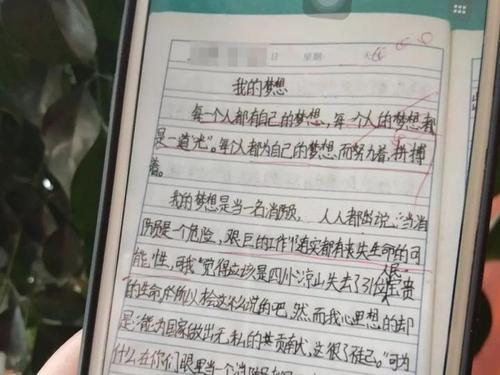 日 星期: 天
我的梦想
每一个人都有自己的梦想，每个人的梦想都
是一道光"。每个人都为自己的梦想而努力着，拼搏
着。
我的梦想是当一名消预。人人都说，"当消
防员是个危险，艰巨的工作"着实都有丧失生命的可
能性，可我"觉得应该是四川凉山失去了31位宝贵
人民
的生命才所以会这么说的吧，然而我心里想的却
是"能为国家做出无私的贡献，这很了得"。可为
什么在你们眼里当一个消